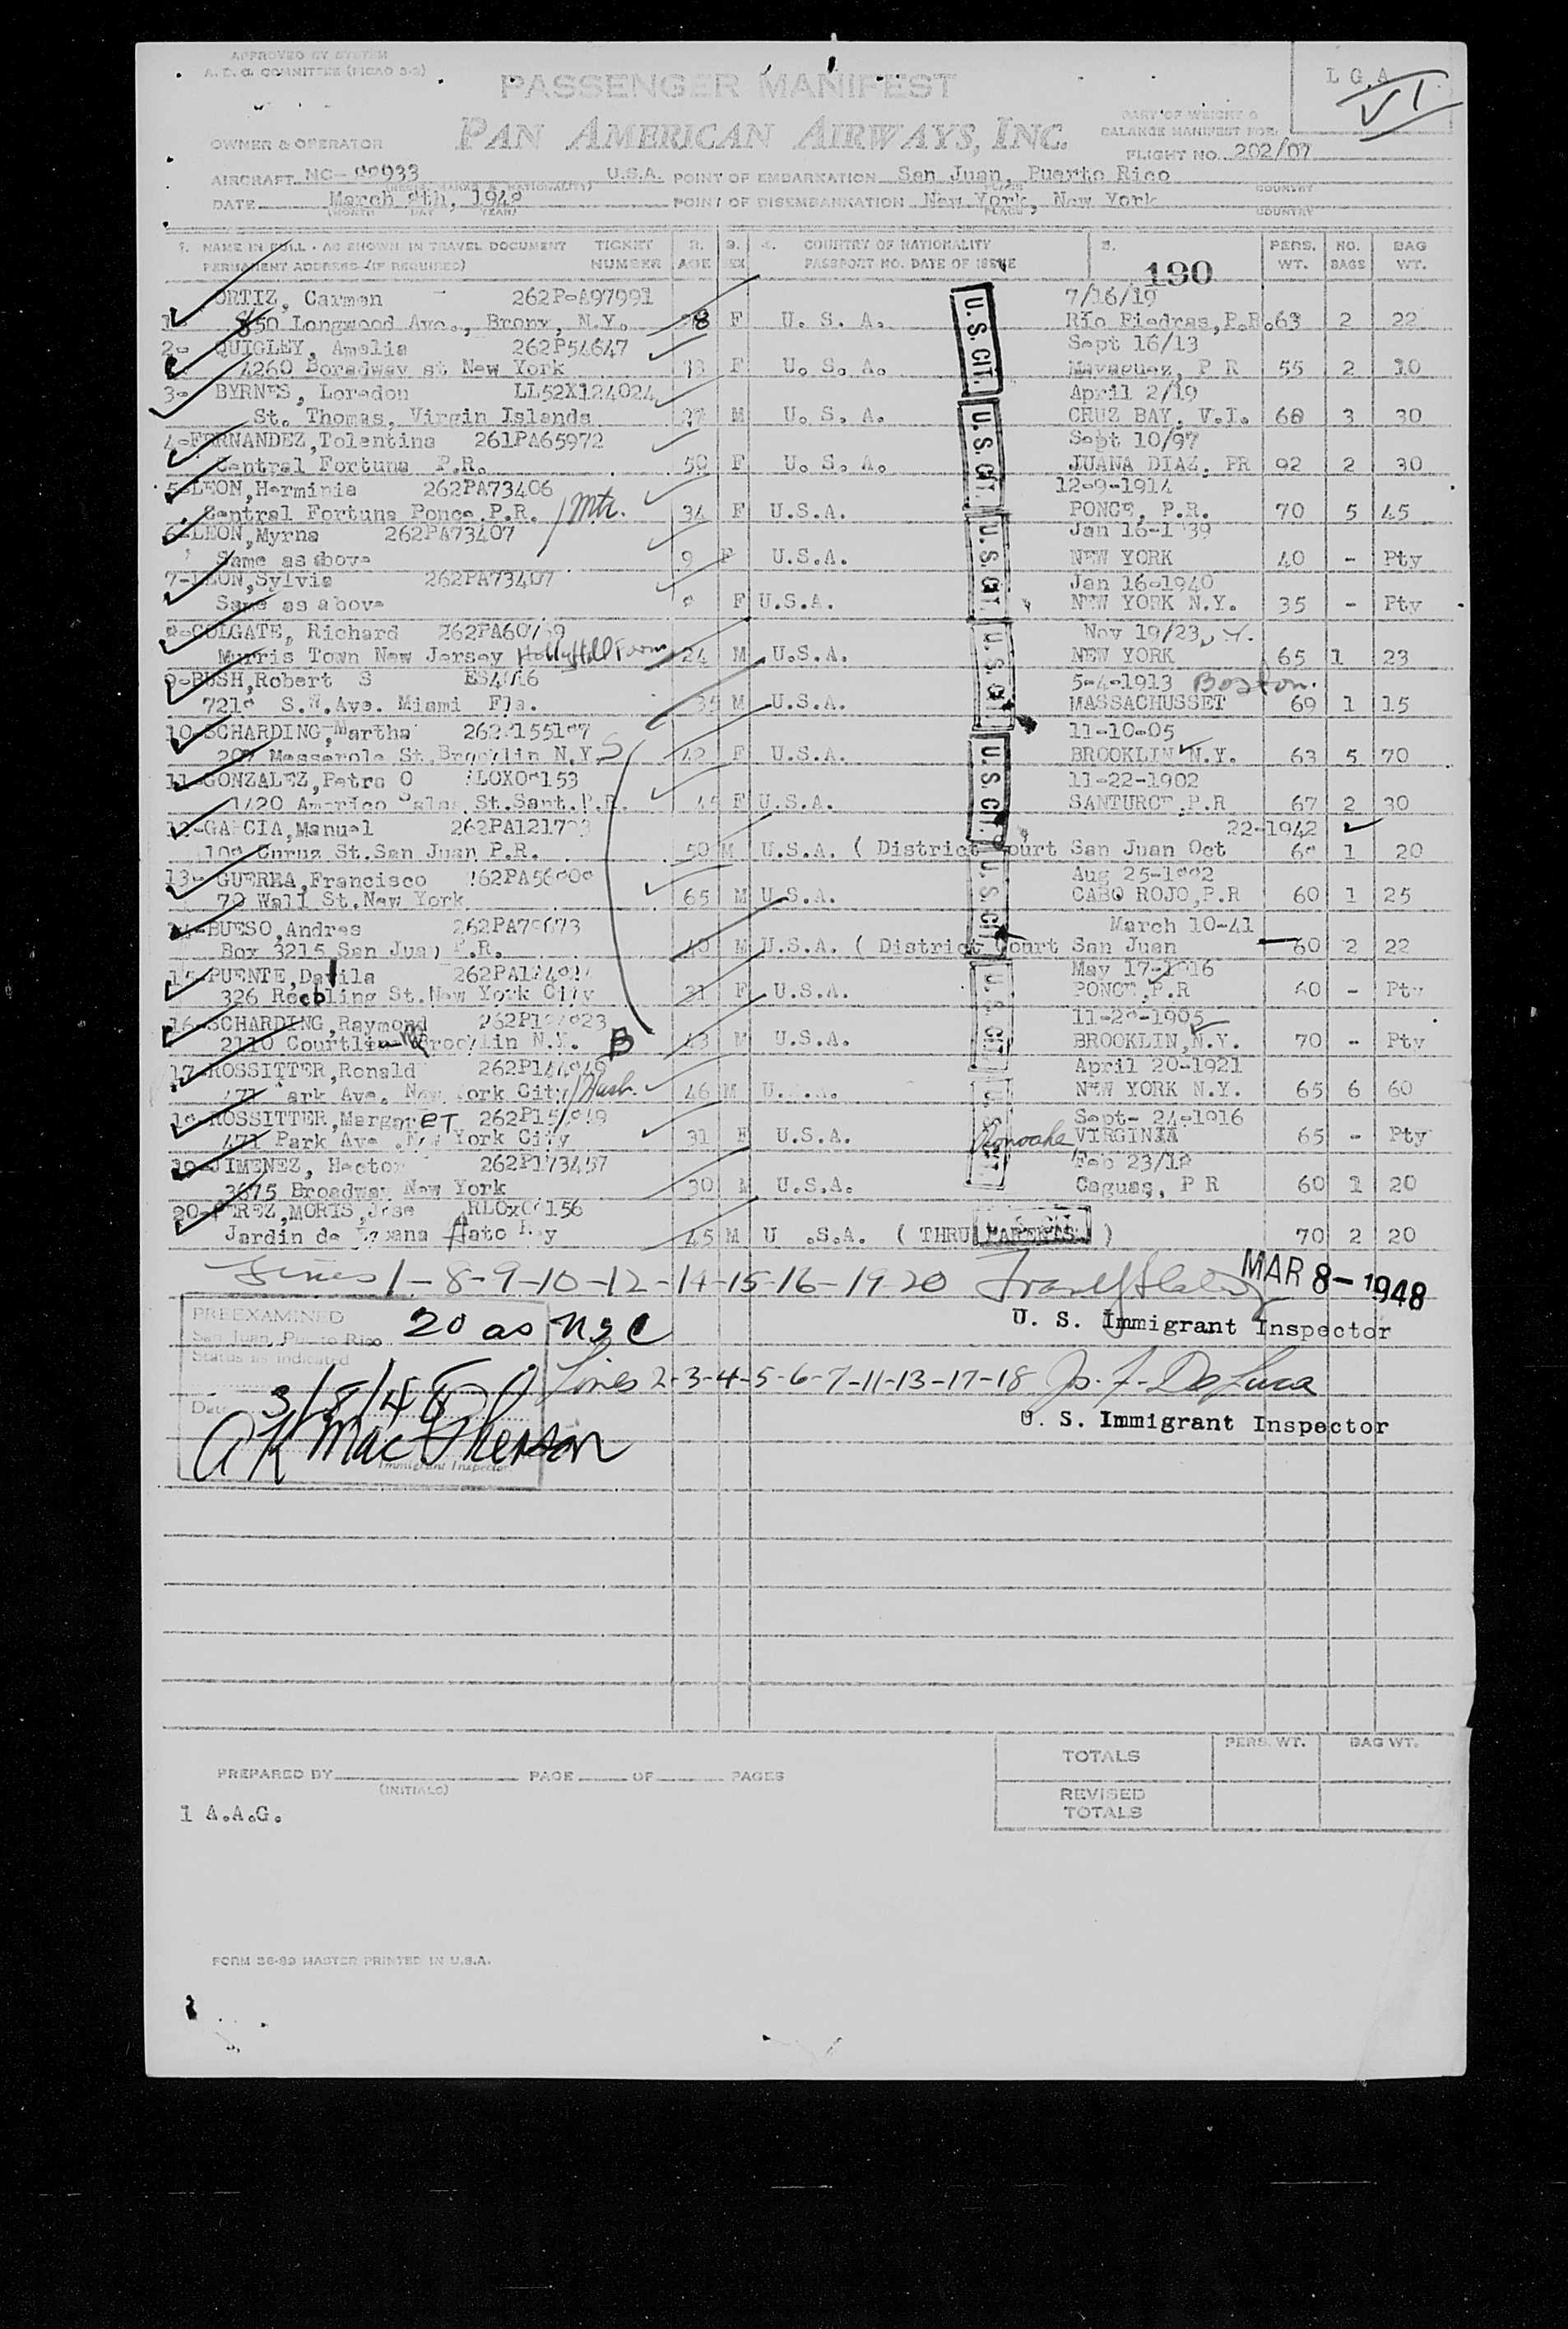 APPROVED BY SYSTEM
A. T. C. COMMITTEE (PICAO 3-2)
L G A
VI
PASSENGER MANIFEST
PAN AMERICAN AIRWAYS, INC.
PART OF WEIGHT &
BALANCE MANIFEST FOR:
OWNER & OPERATOR
FLIGHT NO. 202/07
AIRCRAFT NC- 933 U.S.A. POINT OF EMBARKATION San Juan, Puerto Rico
DATE March 8th, 1948 POINT OF DISEMBARKATION New York, New York
(MONTH DAY YEAR) PLACE COUNTRY
1. NAME IN FULL - AS SHOWN IN TRAVEL DOCUMENT TICKET 2. 3. 4. COUNTRY OF NATIONALITY 5. PERS. NO. BAG
PERMANENT ADDRESS (IF REQUIRED) NUMBER AGE SEX PASSPORT NO. DATE OF ISSUE 190 WT. BAGS WT.
ORTIZ, Carmen 262P-A97991 7/16/19
1- 850 Longwood Ave., Bronx, N.Y. 28 F U. S. A. Rio Piedras, P.R. 63 2 22
2- QUIGLEY, Amelia 262P54647 Sept 16/13
4260 Boradway st New York F U. S. A. Mayaguez, P R 55 2 10
3- BYRNES, Loredon LL52X124024 April 2/19
St. Thomas, Virgin Islands M U. S. A. CRUZ BAY, V.I. 68 3 30
4-FERNANDEZ,Tolentina 261PA65972 Sept 10/97
Central Fortuna P.R. 50 F U. S. A. JUANA DIAZ, PR 92 2 30
5-LEON,Herminia 262PA73406 12-9-1914
Central Fortuna Ponce P.R. / Mtr. 34 F U.S.A. PONCE, P.R. 70 5 45
6-LEON,Myrna 262PA73407 Jan 16-1 39
Same as above 9 F U.S.A. NEW YORK 40 - Pty
7-LEON,Sylvia 262PA73407 Jan 16-1940
Same as above F U.S.A. NEW YORK N.Y. 35 - Pty
8-COLGATE, Richard Nov 19/23
Murris Town New Jersey Holly Hill Farm 24 M U.S.A. NEW YORK 65 1 23
9-BUSH,Robert S 5-4-1913 Boston.
S.W.Ave. Miami Fla. 35 M U.S.A. MASSACHUSSET 69 1 15
10-SCHARDING,Martha 11-10-05
Messerole St.Brooklin N.Y. 42 F U.S.A. BROOKLIN N.Y. 63 5 70
11-GONZALEZ,Petra O 11-22-1902
1420 Americo Salas St.Sant.P.R. 45 F U.S.A. SANTURCE,P.R 67 2 30
12-GARCIA,Manuel 22-1942
St.San Juan P.R. 50 M U.S.A. ( District Court San Juan Oct 1 20
13- GUERRA,Francisco Aug 25-
70 Wall St.New York 65 M U.S.A. CABO ROJO,P.R 60 1 25
14-BUESO,Andres 262PA79673 March 10-41
Box 3215 San Juan P.R. 40 M U.S.A. ( District Court San Juan 60 2 22
15-PUENTE,Davila May 17-1916
326 Roebling St.New York City 31 F U.S.A. PONCE,P.R 60 - Pty
16-SCHARDING,Raymond 11-28-1905
2110 Brooklin N.Y. B 43 M U.S.A. BROOKLIN,N.Y. 70 - Pty
17-ROSSITTER,Ronald April 20-1921
471 Park Ave. New York City/Husb. 46 M U.S.A. NEW YORK N.Y. 65 6 60
18-ROSSITTER,MargarET Sept- 24-1916
471 Park Ave .New York City 31 F U.S.A. Roanoake VIRGINIA 65 - Pty
19-JIMENEZ, Hector Feb 23/18
3675 Broadway New York 30 M U.S.A. Caguas, P R 60 1 20
20-PEREZ,MORIS,Jose
Jardin de Hato Rey 45 M U .S.A. ( THRU PARENTS ) 70 2 20
U. S. CIT.
U. S. CIT.
U. S. CIT.
U. S. CIT.
U. S. CIT.
U. S. CIT.
U. S. CIT.
U. S. CIT.
Lines 1-8-9-10-12-14-15-16-19-20 MAR 8-1948
U. S. Immigrant Inspector
PREEXAMINED
San Juan, Puerto Rico 20 as nsc
Status as indicated
Lines 2-3-4-5-6-7-11-13-17-18 Jo. F. DeLuca
U. S. Immigrant Inspector
Date 3/8/48
A K MacPherson
Immigrant Inspector
TOTALS PERS. WT. BAG WT.
PREPARED BY PAGE OF PAGES
(INITIALS)
REVISED
TOTALS
1 A.A.G.
FORM 36-83 MASTER PRINTED IN U.S.A.